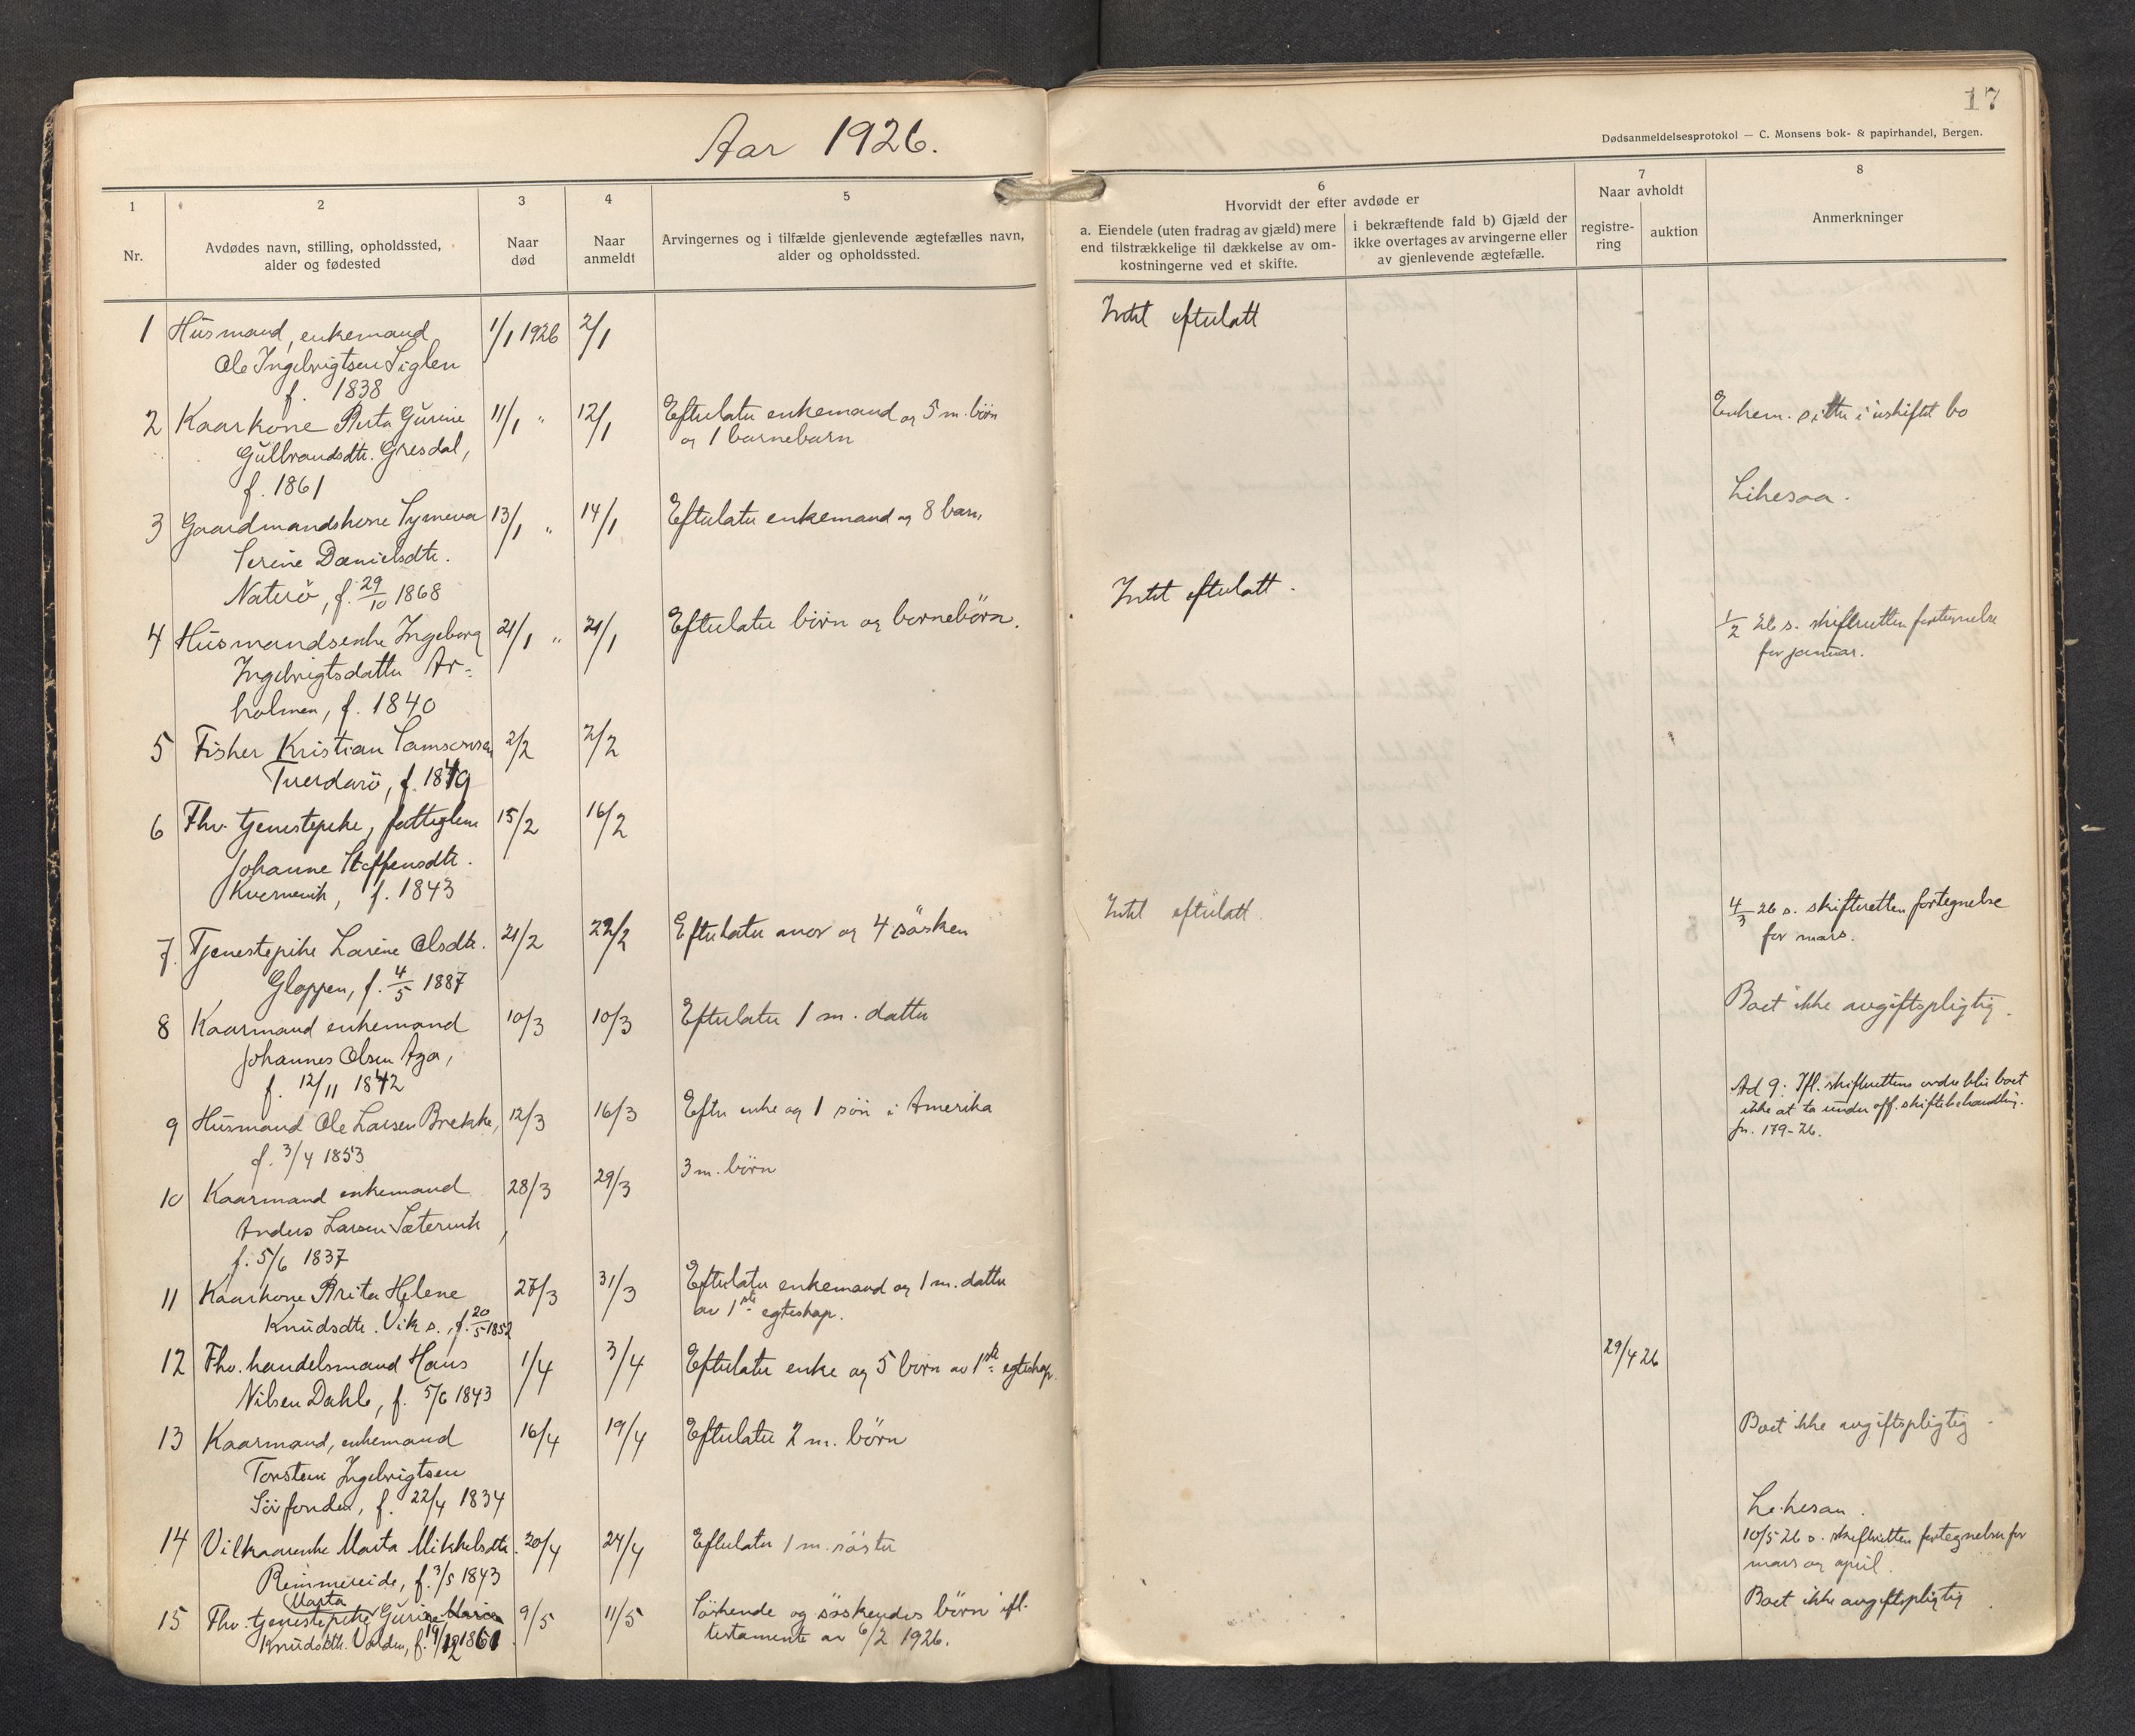 Aar 1926.
1
Nr.
2
Avdødes navn, stilling, opholdssted,
alder og fødested
3
Naar
død
4
Naar
anmeldt
5
Arvingernes og i tilfælde gjenlevende ægtefælles navn,
alder og opholdssted.
1 Husmand, enkemand 1/1 1926 2/1
Ole Ingebrigtsen Siglen
f. 1838
2 Kaarkone Berta Gurine 11/1 " 12/1 Efterlater enkemand og 5 m. børn
Gulbrandsdtr. Gresdal, og 1 barnebarn
f. 1861
3 Gaardmandskone Synneva 13/1 " 14/1 Efterlater enkemand og 8 barn
Serine Danielsdtr.
Naterö, f. 29/10 1868
4 Husmandsenke Ingeborg 21/1 " 21/1 Efterlater börn og barnebörn.
Ingebrigtsdatter Ar=
holmen, f. 1840
5 Fisker Kristian Samsonsen 2/2 2/2
f. 1849
6 Fhv. tjenestepike, fattiglem 15/2 16/2
Johanne Steffensdtr.
Kvernevik, f. 1843
7. Tjenestepike Larine Olsdtr. 21/2 22/2 Efterlater mor og 4 søsken
Gloppen, f. 4/5 1887
8 Kaarmand enkemand 10/3 10/3 Efterlater 1 m. datter
Johannes Olsen Aga,
f. 12/11 1842
9 Husmand Ole Larsen Brekke, 12/3 16/3 Efter enke og 1 søn i Amerika
f. 3/4 1853
10 Kaarmand enkemand 28/3 29/3 3 m. børn
Anders Larsen Sætervik,
f. 5/6 1837
11 Kaarkone Brita Helene 27/3 31/3 Efterlater enkemand og 1 m. datter
Knudsdtr. Vik s., f. 20/5 1852 av 1ste egteskap.
12 Fhv. handelsmand Hans 1/4 3/4 Efterlater enke og 5 børn av 1ste egteskap
Nilsen Dahle, f. 5/6 1843
13 Kaarmand, enkemand 16/4 19/4 Efterlater 2 m. börn
Torstein Ingebrigtsen
f. 22/4 1834
14 Vilkaarenke Marta Mikkelsdtr. 20/4 24/4 Efterlater 1 m. søster
Rimmereide, f. 3/5 1843
Marta
15 Fhv. tjenestepike Gurine Maria 9/5 11/5 Søskende og søskendes børn ifl.
Knudsdtr. Valden, f. 19/12 1861 testamente av 6/2 1926.
17
Dødsanmeldelsesprotokol — C. Monsens bok- & papirhandel, Bergen.
6
Hvorvidt der efter avdøde er
a. Eiendele (uten fradrag av gjæld) mere
end tilstrækkelige til dækkelse av om-
kostningerne ved et skifte.
i bekræftende fald b) Gjæld der
ikke overtages av arvingerne eller
av gjenlevende ægtefælle.
7
Naar avholdt
registre-
ring
auktion
8
Anmerkninger
Intet efterlatt
Enkem. sitter i uskiftet bo
Likesaa.
Intet efterlatt.
1/2 26 s. skifteretten fortegnelse
for januar.
Intet efterlatt.
4/3 26 s. skifteretten fortegnelse
for mars.
Boet ikke avgiftspligtig.
Ad 9: Ifl. skifterettens ordre blir boet
ikke at ta under off. skiftebehandling.
jn. 179-26.
29/4 26
Boet ikke avgiftspligtig.
Likesaa.
10/5 26 s. skifteretten fortegnelse for
mars og april.
Boet ikke avgiftspligtig.